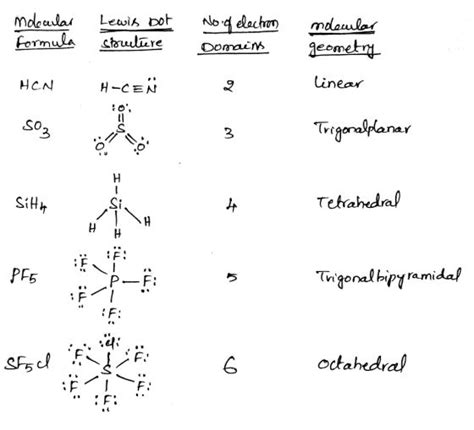 Molecular Formula Lewis Dot Structure No. of electron Domains molecular geometry
HCN H-C≡N̈ 2 Linear
SO₃ :O: S O O 3 Trigonalplanar
SiH₄ H Si H H H 4 Tetrahedral
PF₅ :F: :F: P-F: :F: :F: 5 Trigonalbipyramidal
SF₅Cl :Cl: :F F: S :F F: :F: 6 Octahedral